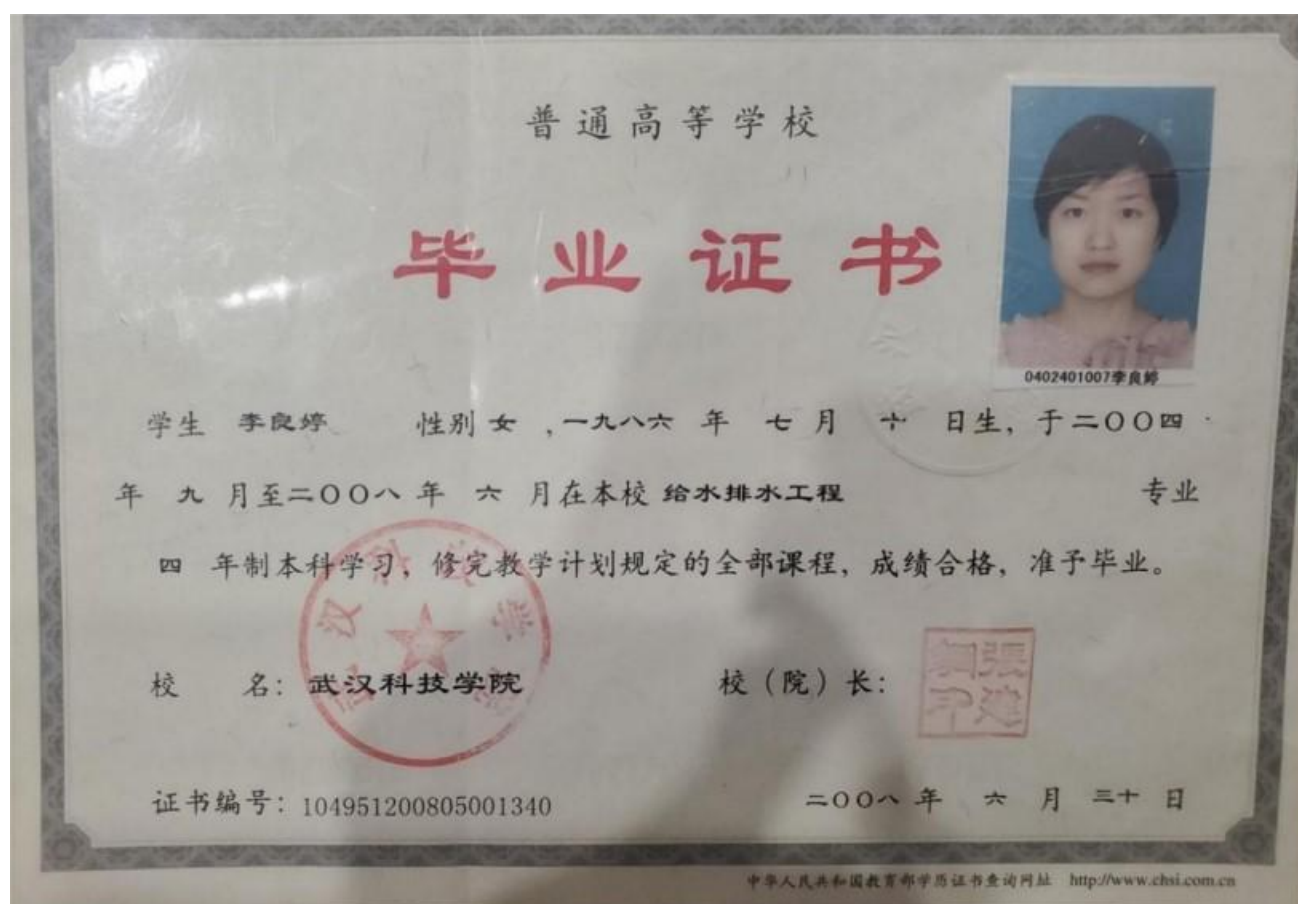 普通高等学校
毕业证书
0402401007李良婷
学生 李良婷 性别 女 ,一九八六 年 七 月 十 日生, 于二〇〇四
年 九 月至二〇〇八 年 六 月在本校 给水排水工程 专业
四 年制本科学习, 修完教学计划规定的全部课程, 成绩合格, 准予毕业。
武汉科技学院
校 名: 武汉科技学院 校(院)长:
证书编号: 104951200805001340 二〇〇八 年 六 月 三十 日
中华人民共和国教育部学历证书查询网址 http://www.chsi.com.cn